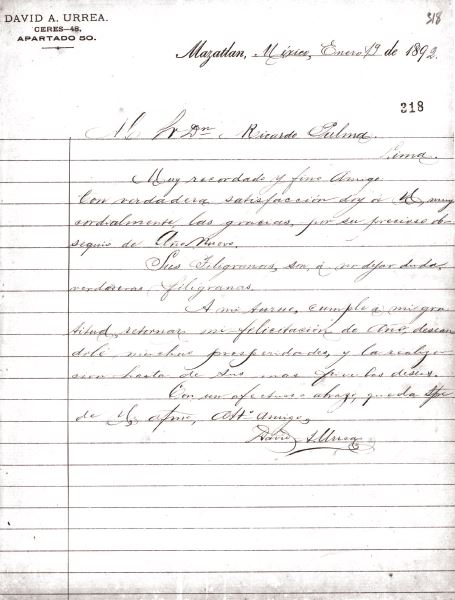 DAVID A. URREA.
CERES-48.
APARTADO 50.
318
Mazatlan, México, Enero 19 de 1892.
318
Al Sr Dn Ricardo Palma.
Lima.
Muy recordado y fino Amigo
Con verdadera satisfacción doy á U. muy
cordialmente las gracias, por su precioso ob-
sequio de Año Nuevo.
Sus Filigranas, son, á no dejar duda,
verdaderas filigranas.
A mi turno, cumple á mi gra-
titud, retornar mi felicitación de Año, desean
dole muchas prosperidades, y la realiza-
cion hasta de sus mas deseos.
Con un afectuoso abrazo, queda spre
de U. afmo, Atto Amigo,
David A. Urrea